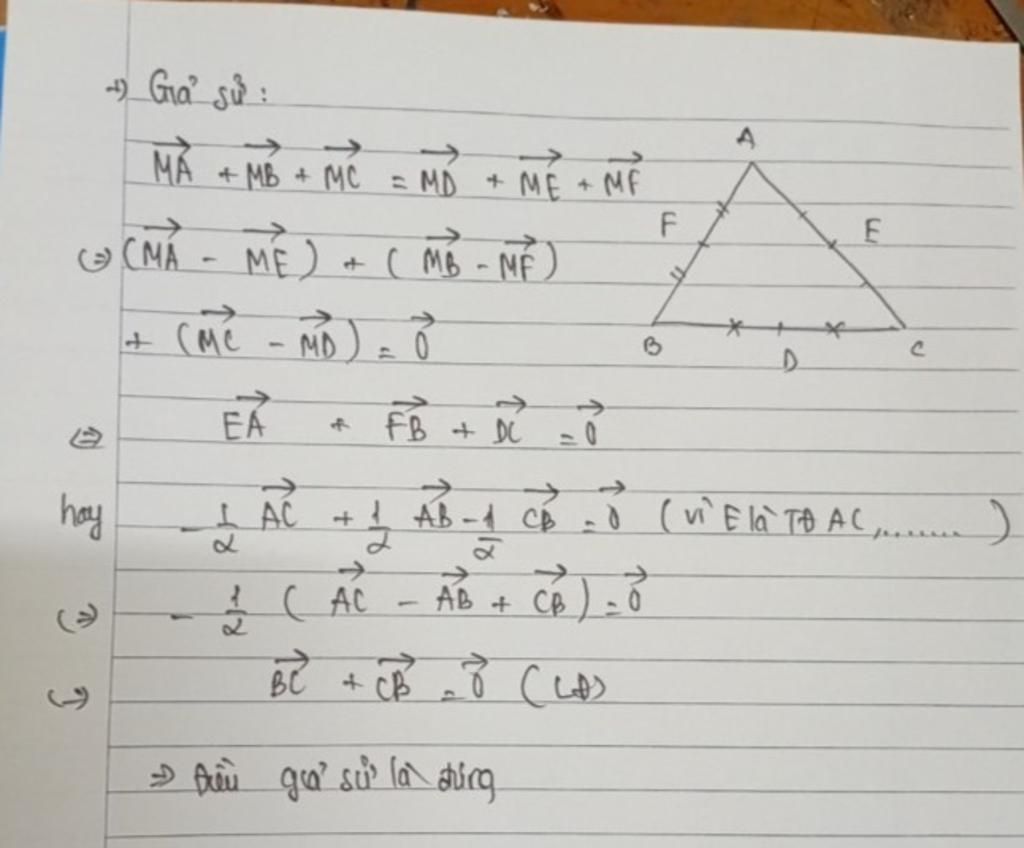 →) Giả sử:
$\overrightarrow{MA} + \overrightarrow{MB} + \overrightarrow{MC} = \overrightarrow{MD} + \overrightarrow{ME} + \overrightarrow{MF}$
(=) $(\overrightarrow{MA} - \overrightarrow{ME}) + (\overrightarrow{MB} - \overrightarrow{MF})$
$+ (\overrightarrow{MC} - \overrightarrow{MD}) = \vec{0}$
(=) $\overrightarrow{EA} + \overrightarrow{FB} + \overrightarrow{DC} = \vec{0}$
hay $-\frac{1}{2} \overrightarrow{AC} + \frac{1}{2} \overrightarrow{AB} - \frac{1}{2} \overrightarrow{CB} = \vec{0}$ (vì E là TĐ AC, ........)
(=) $-\frac{1}{2} (\overrightarrow{AC} - \overrightarrow{AB} + \overrightarrow{CB}) = \vec{0}$
(→) $\overrightarrow{BC} + \overrightarrow{CB} = \vec{0}$ (LĐ)
⇒ Điều giả sử là đúng
A
F E
B D C